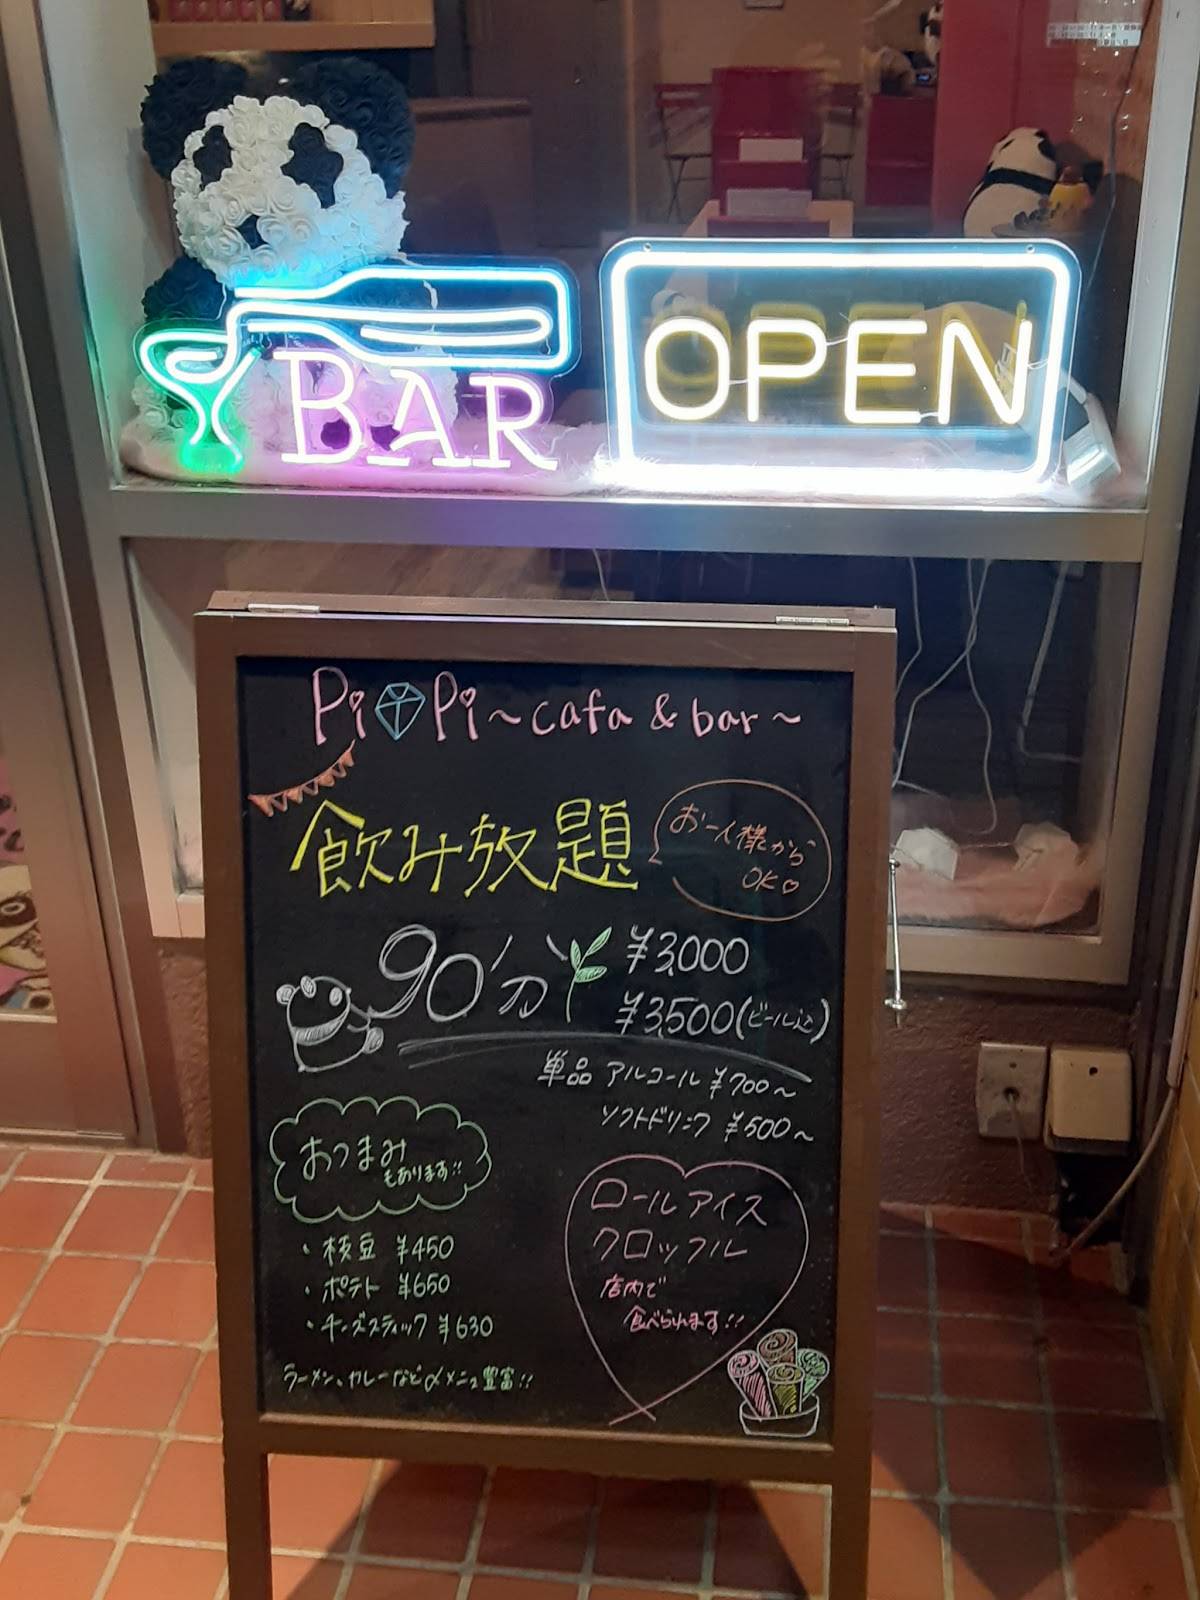 BAR
OPEN
Pi Pi ~cafa & bar~
飲み放題
お一人様から
OK♡
90分
¥3,000
¥3,500(ビール込)
単品 アルコール ¥700~
ソフトドリンク ¥500~
おつまみ
もあります!!
・枝豆 ¥450
・ポテト ¥650
・チーズスティック ¥630
ラーメン、カレーなど〆メニュ豊富!!
ロールアイス
クロッフル
店内で
食べられます!!